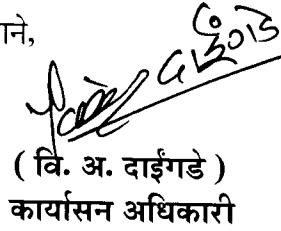 ाने,
दाईंगडे
( वि. अ. दाईंगडे )
कार्यासन अधिकारी